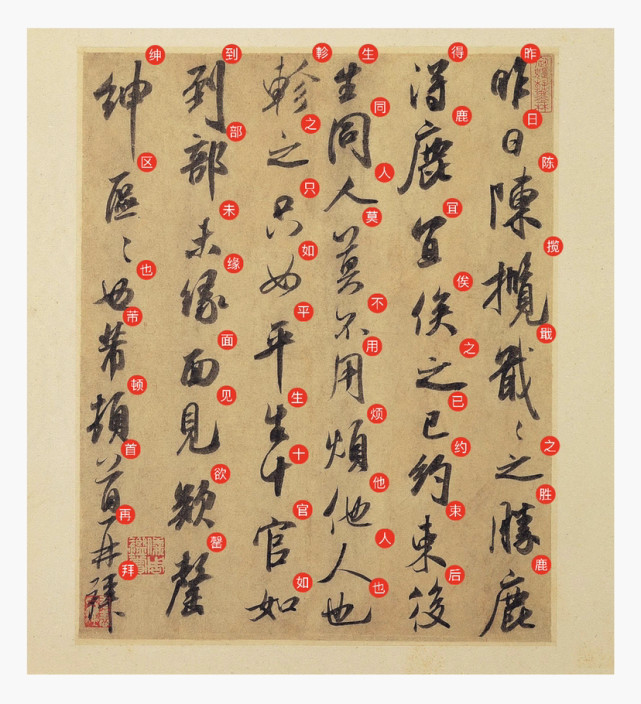 昨日陳攬戢〻之勝鹿
得鹿宜俟之已約束後
生同人莫不用煩他人也
軫之只如平生十官如
到部未緣面見欲罄
紳區〻也芾頓首再拜
昨日陈揽戢之胜鹿
得鹿宜俟之已约束后
生同人莫不用烦他人也
軫之只如平生十官如
到部未缘面见欲罄
绅区也芾顿首再拜